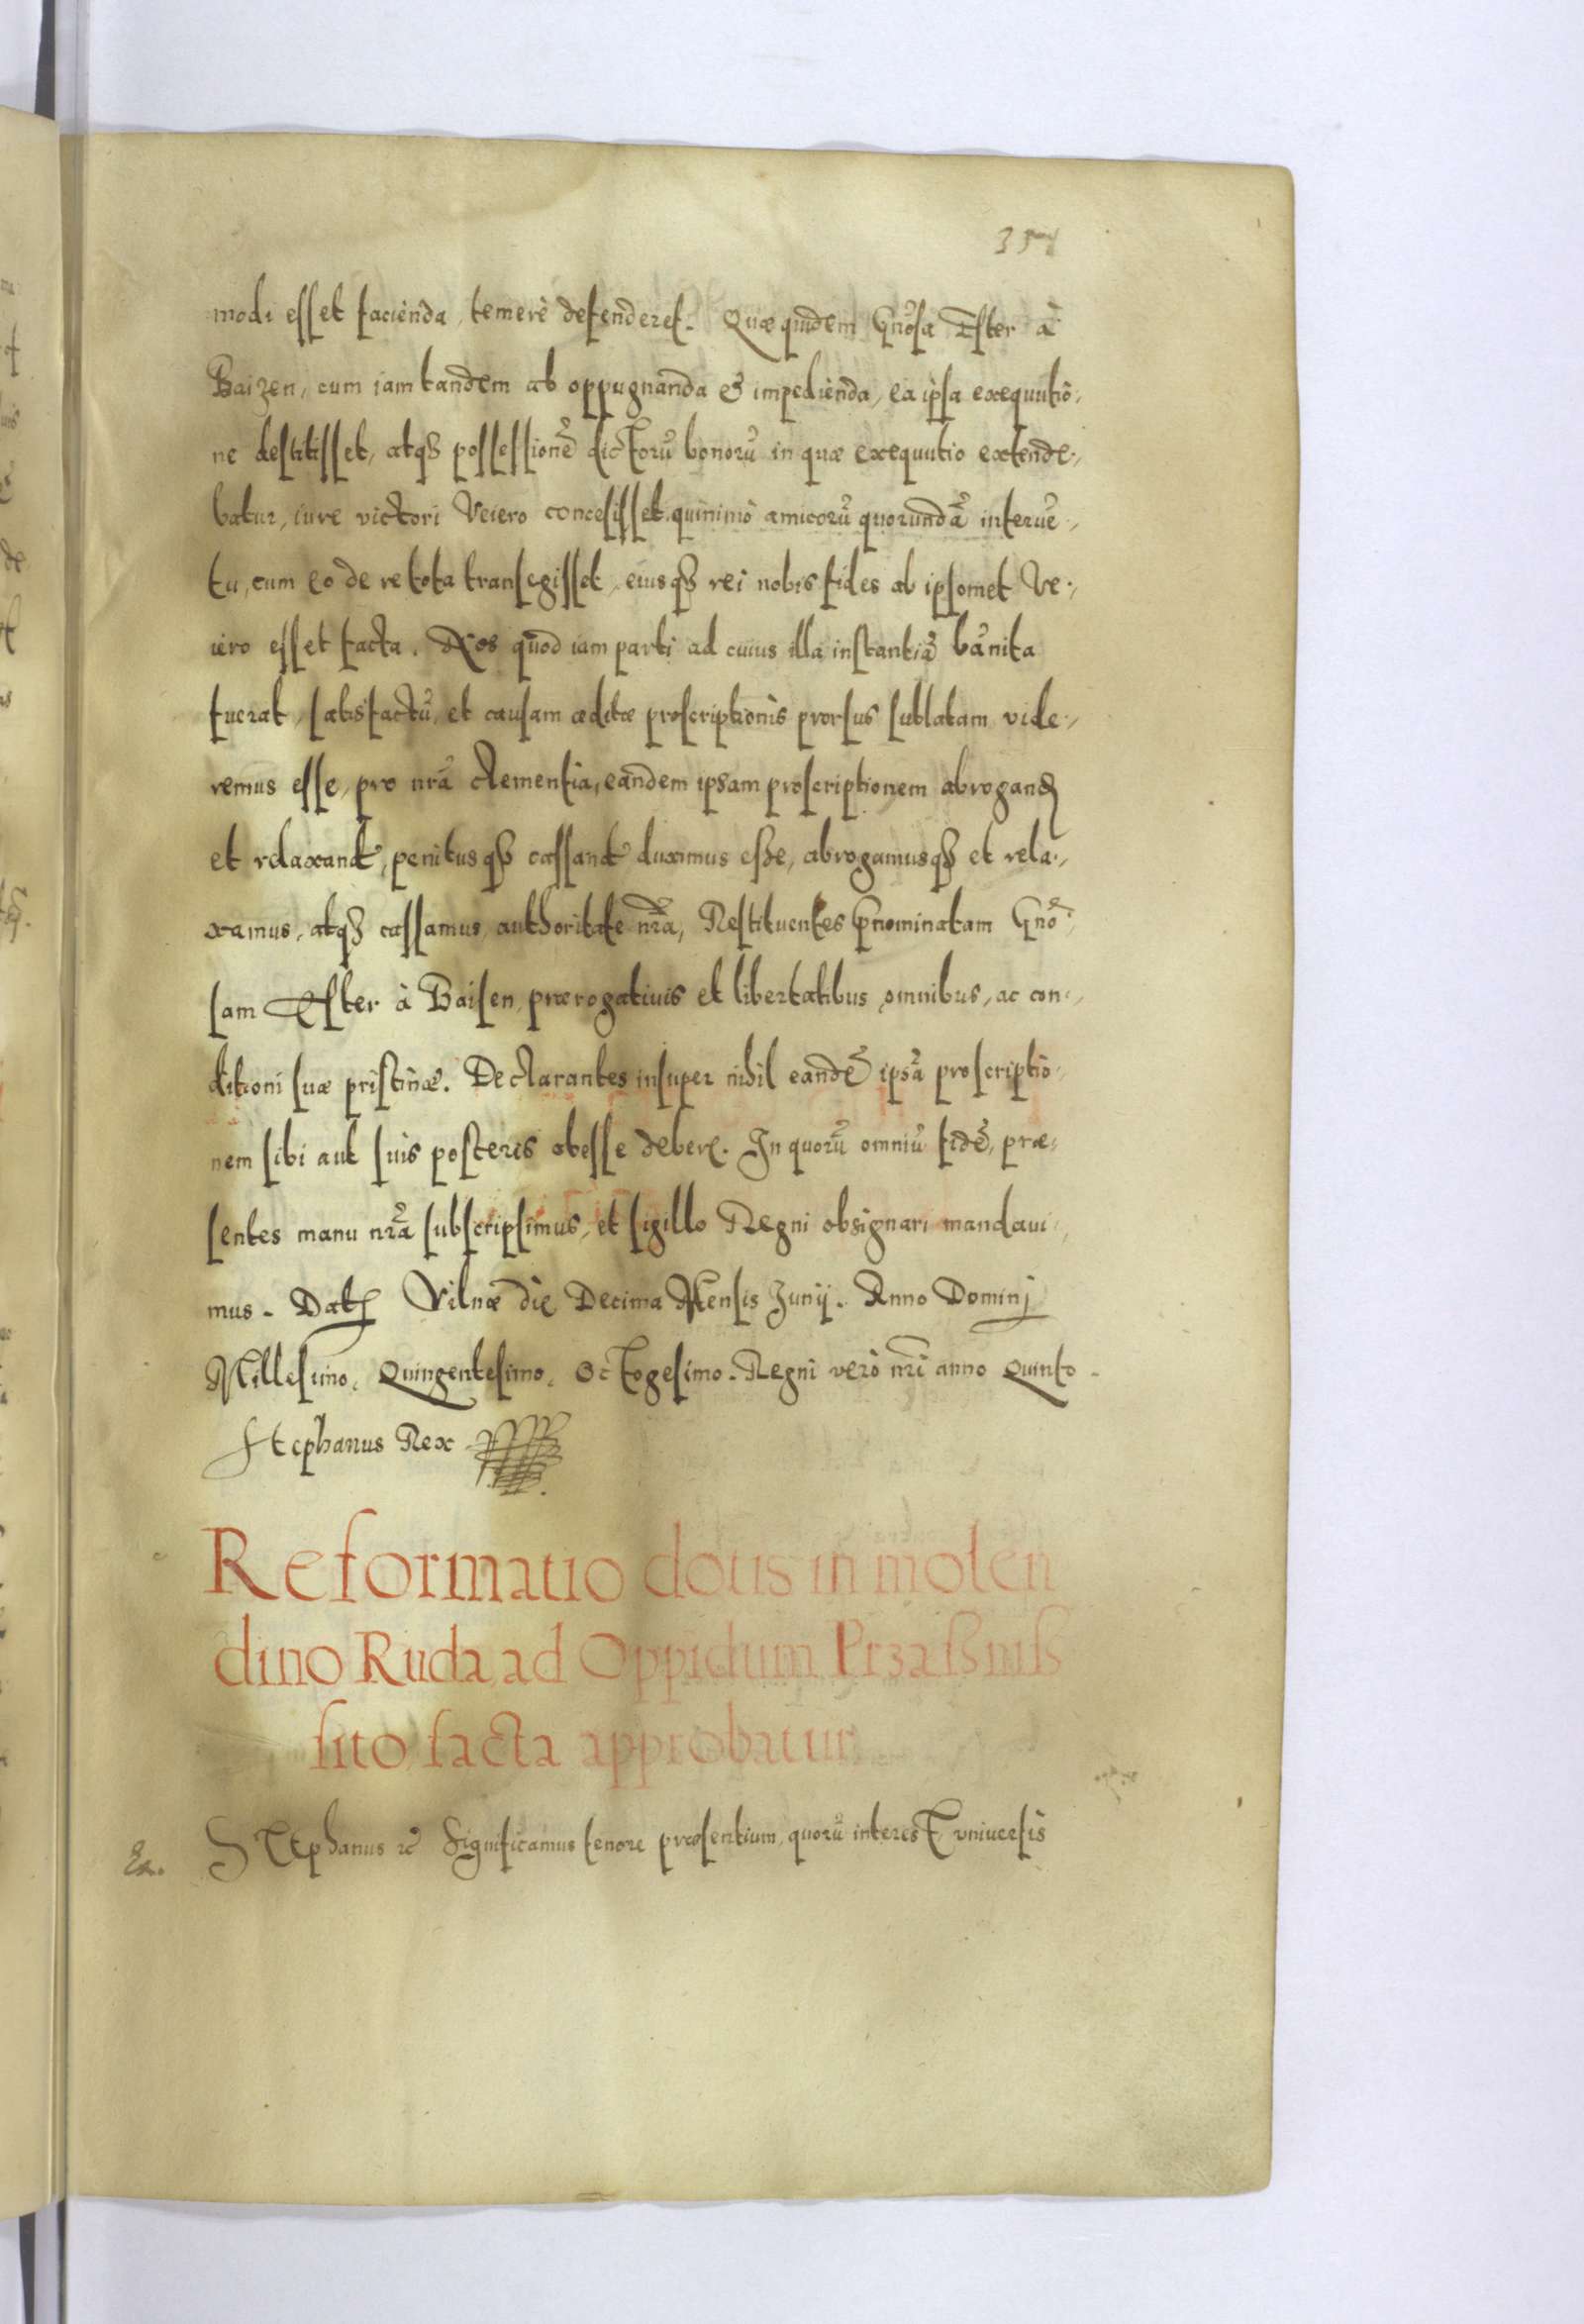 modi esset facienda, temerè defenderet. Quæ quidem Gnõsa Ester à
Baizen, cum iam tandem ab oppugnanda & impedienda, ea ipsa exequutio-
ne destitisset, atq₃ possessionẽ dictorũ bonorũ in quæ exequutio extende-
batur, iure victori Veiero concesisset, quinimò amicorũ quorundã interuẽ-
tu, cum eo de re tota transegisset, eiusq₃ rei nobis fides ab ipsomet Ve-
iero esset facta. Nos quod iam parti ad cuius illa instantiã bãnita
fuerat, satisfactũ, et causam æditæ proscriptionis prorsus sublatam vide-
remus esse, pro nrã clementia, eandem ipsam proscriptionem abrogand
et relaxand, penitusq₃ cassand duximus esse, abrogamusq₃ et rela-
xamus, atq₃ cassamus, authoritate nrã, Restituentes p̱nominatam Gnõ-
sam Ester à Baisen, prærogatiuis et libertatibus omnibus, ac con-
ditioni suæ pristinæ. Declarantes insuper nihil eandẽ ipsã proscriptio-
nem sibi aut suis posteris obesse deber̃. In quorũ omniũ fidẽ, præ-
sentes manu nrã subscripsimus, et sigillo Regni obsignari mandaui-
mus. Dat Vilnæ die Decima Mensis Junij. Anno Dominj
Millesimo, Quingentesimo, Octogesimo. Regni verò nrĩ anno Quinto.
Stephanus Rex
Reformatio dotis in molen
dino Ruda, ad Oppidum Przasnis
sito, facta approbatur
Stephanus &c̃ Significamus tenore præsentium, quorũ interest vniuersis